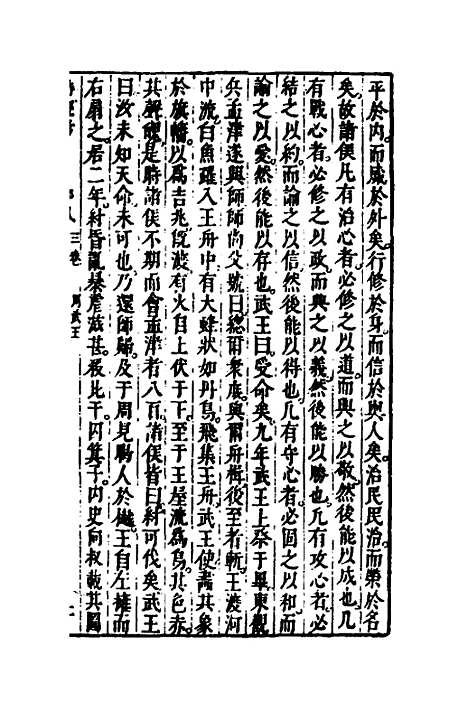 平於内而威於外矣行修於身而信於輿人矣治民民治而榮於名
矣故諸侯凡有治心者必修之以道而與之以敬然後能以成也凡
有戰心者必修之以政而興之以義然後能以勝也凡有攻心者必
結之以約而諭之以信然後能以得也凡有守心者必固之以和而
諭之以愛然後能以存也武王曰受命矣九年武王上祭于畢東觀
兵孟津遂興師師尚父號曰總爾衆庶與爾舟楫後至者斬王渡河
中流白魚躍入王舟中有大蜂狀如丹鳥飛集王舟武王使畫其象
於旗幡以爲吉兆旣渡有火自上伏于下至于王屋流爲烏其色赤
其聲魄是時諸侯不期而會孟津者八百諸侯皆曰紂可伐矣武王
曰汝未知天命未可也乃還師歸及于周見鶡人於樾王自左擁而
右扇之居二年紂昏亂暴虐滋甚殺比干囚箕子内史向叔載其圖
三卷 周武王